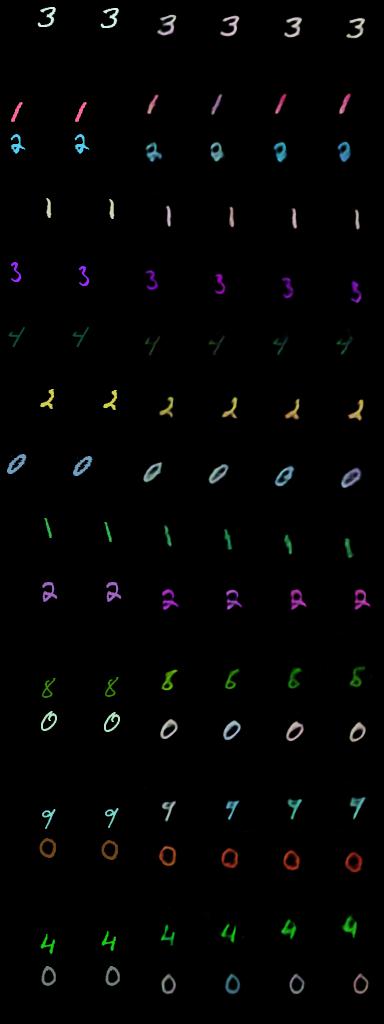 3 3 3 3 3 3
1 1 1 1 1 1
2 2 2 2
1 1 1 1 1 1
3 3 3 3 3 3
4 4 4 4 4 4
2 2 2 2 2 2
0 0 0 0 0 0
1 1 1 1 1 1
2 2 2 2 2 2
8 8 8
0 0 0 0 0 0
9 9 9 9 9 9
0 0 0 0 0 0
4 4 4 4 4 4
0 0 0 0 0 0